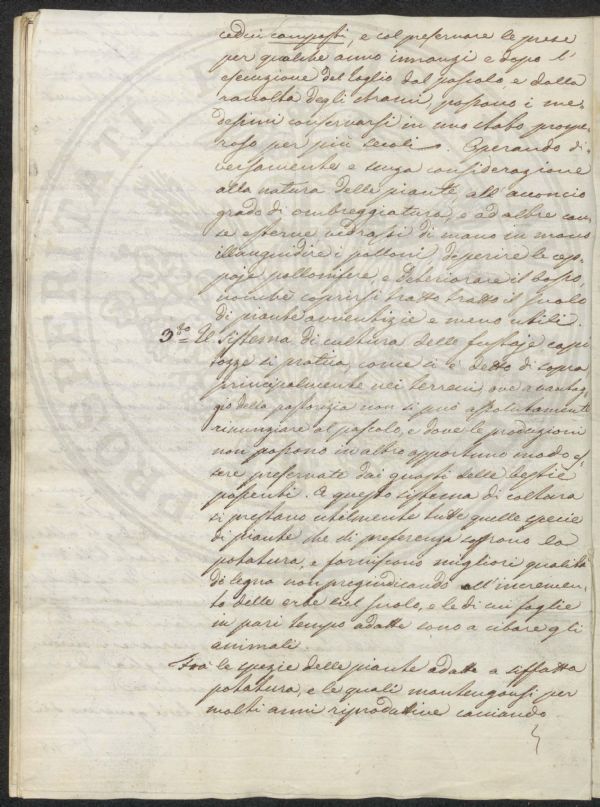 cedui composti, e col preservare le prese
per qualche anno innanzi e dopo l'
esecuzione del taglio dal pascolo e dalla
raccolta degli strami, possono i me-
desimi conservarsi in uno stato prospe-
roso per più secoli. Operando di-
versamente e senza considerazione
alla natura delle piante all'acconcio
grado di ombreggiatura, e ad altre cau-
se esterne vedrassi di mano in mano
illanguidire i polloni, deperire le cep-
paje pollonifere, e deteriorare il bosco,
nonché coprirsi tratto tratto il suolo
di piante avventizie e meno utili.
3.zo Il Sistema di cultura delle fustaje capi-
tozze si pratica, come si è detto di sopra
principalmente nei terreni, ove a vantag-
gio della pastorizia non si può assolutamente
rinunziare al pascolo, e dove le produzioni
non possono in altro opportuno modo es-
sere preservate dai guasti delle bestie
pascenti. A questo sistema di coltura
si prestano utilmente tutte quelle specie
di piante che di preferenza soffrono la
potatura, e forniscono migliori qualità
di legna non pregiudicando all'incremen-
to delle erbe sul suolo, e le di cui foglie
in pari tempo adatte sono a cibare gli
animali.
Fra le spezie delle piante adatte a siffatta
potatura, e le quali mantengonsi per
molti anni riproduttive
PROSPERITATI